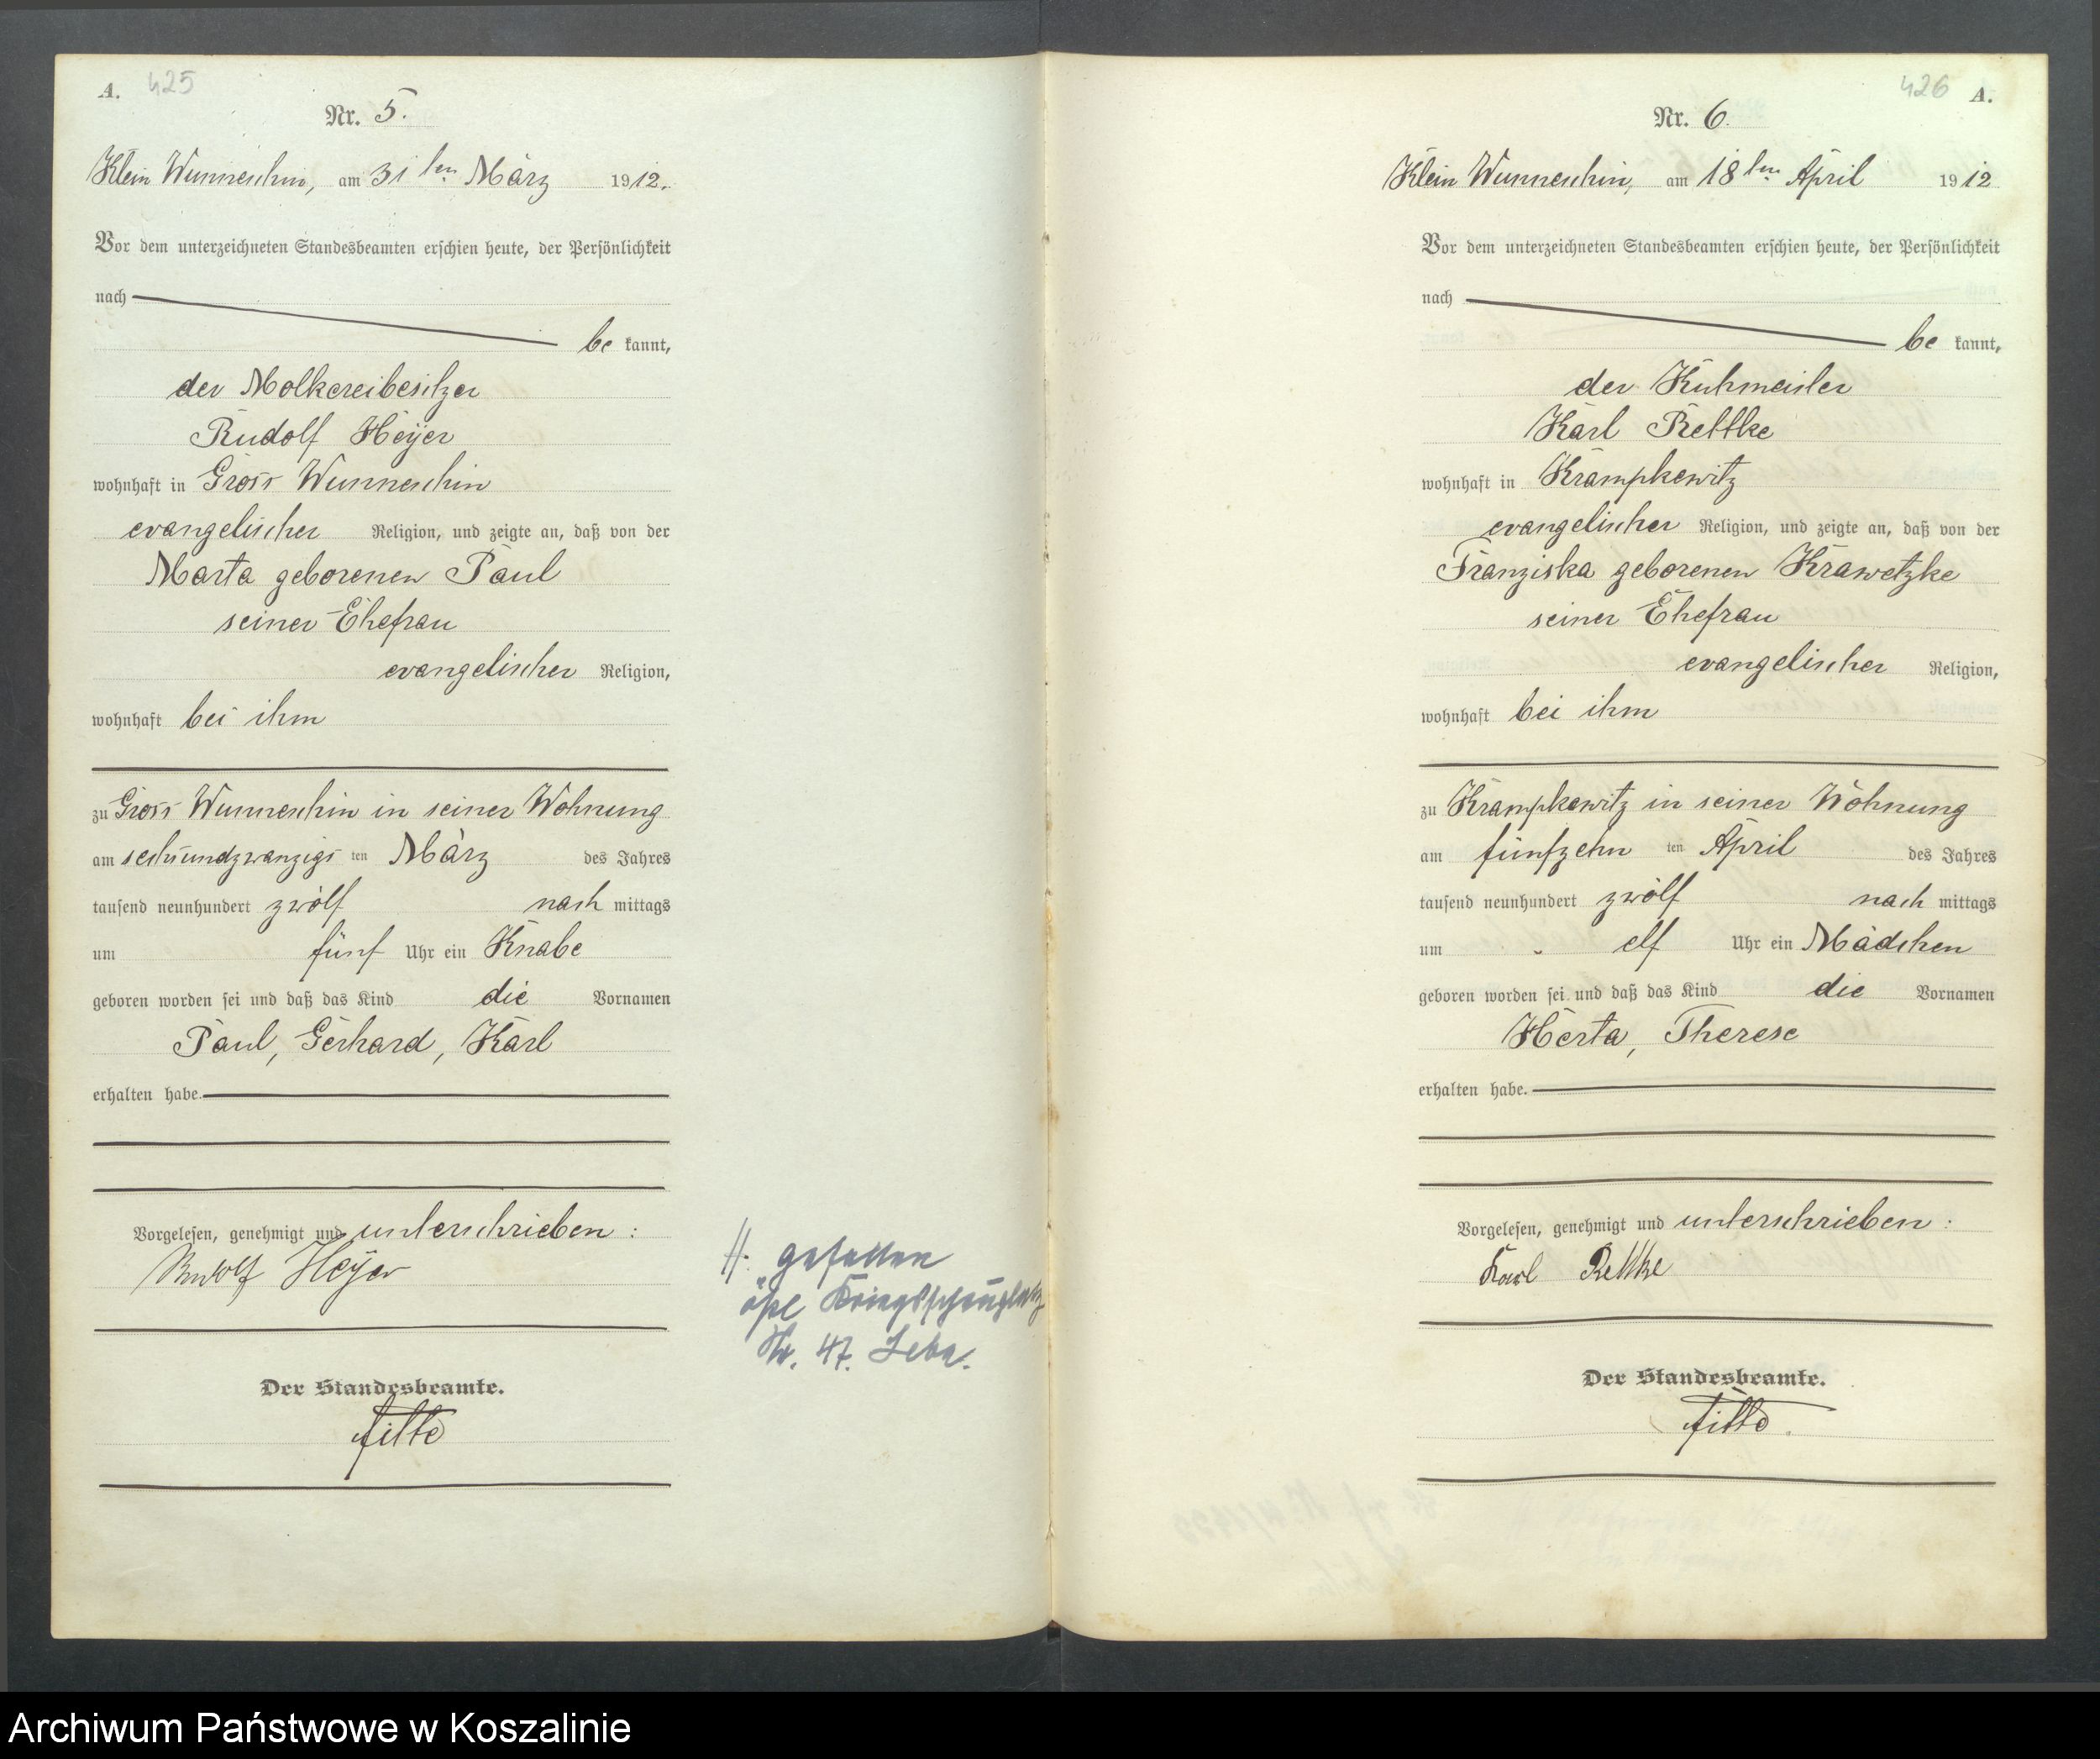 A. 425
Nr. 5.
Klein Wunneschin, am 31ten März 1912.
Vor dem unterzeichneten Standesbeamten erschien heute, der Persönlichkeit
nach
be kannt,
der Molkereibesitzer
Rudolf Heyer
wohnhaft in Gross Wunneschin
evangelischer Religion, und zeigte an, daß von der
Marta geborenen Paul
seiner Ehefrau
evangelischer Religion,
wohnhaft bei ihm
zu Gross Wunneschin in seiner Wohnung
am sechsundzwanzigs ten März des Jahres
tausend neunhundert zwölf nach mittags
um fünf Uhr ein Knabe
geboren worden sei und daß das Kind die Vornamen
Paul, Gerhard, Karl
erhalten habe.
Vorgelesen, genehmigt und unterschrieben:
Rudolf Heyer
Der Standesbeamte.
gefallen
Kriegsschauplatz
47. Leba.
426 A.
Nr. 6.
Klein Wunneschin, am 18ten April 1912
Vor dem unterzeichneten Standesbeamten erschien heute, der Persönlichkeit
nach
be kannt,
der Kuhmeister
Karl Rettke
wohnhaft in Krampkewitz
evangelischer Religion, und zeigte an, daß von der
Franziska geborenen Krawetzke
seiner Ehefrau
evangelischer Religion,
wohnhaft bei ihm
zu Krampkewitz in seiner Wohnung
am fünfzehn ten April des Jahres
tausend neunhundert zwölf nach mittags
um elf Uhr ein Mädchen
geboren worden sei und daß das Kind die Vornamen
Herta, Therese
erhalten habe.
Vorgelesen, genehmigt und unterschrieben:
Karl Rettke
Der Standesbeamte.
Archiwum Państwowe w Koszalinie